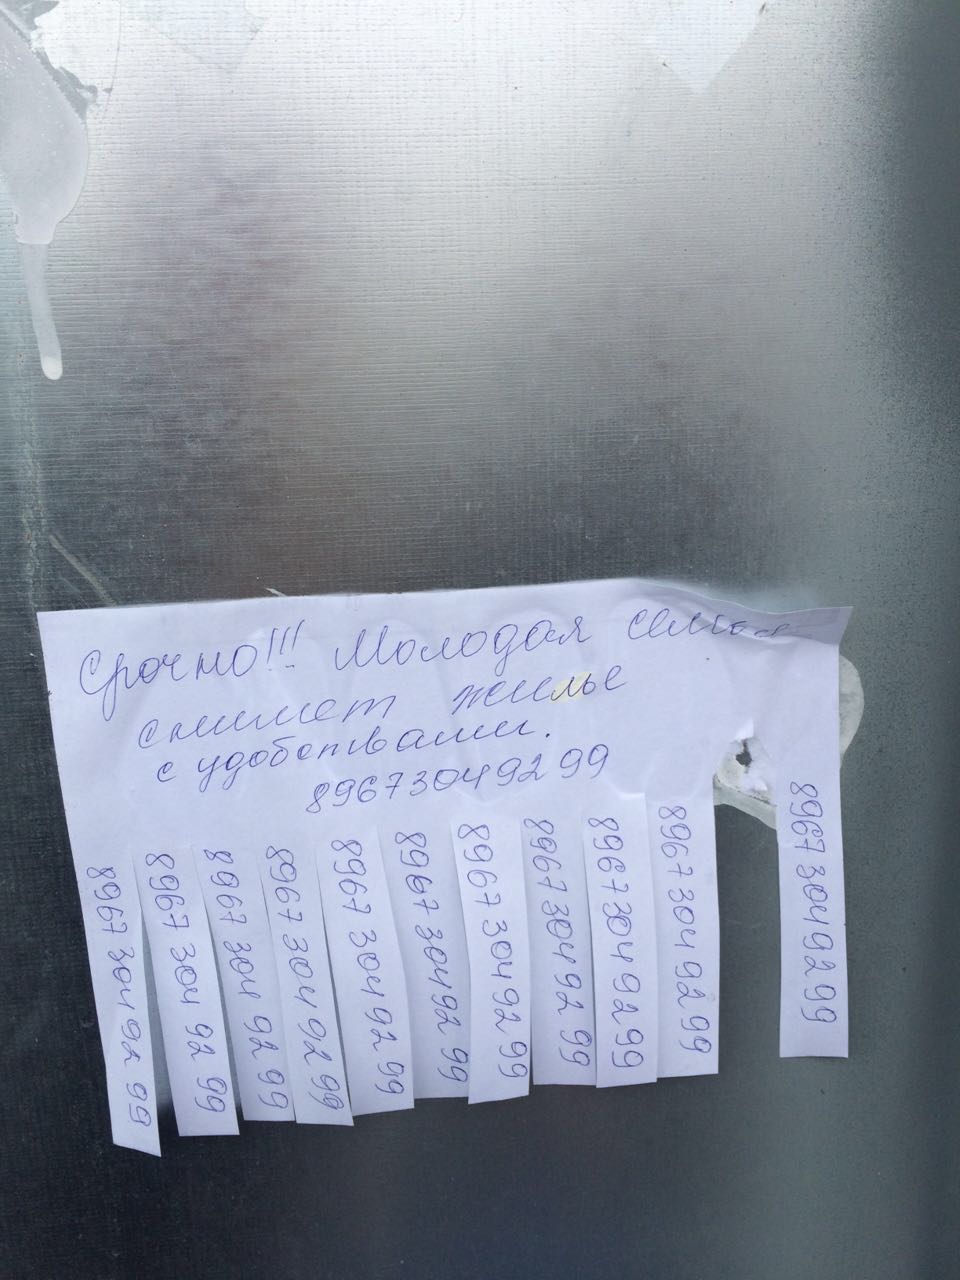 Срочно!!! Молодая семья
снимет жилье
с удобствами.
89673049299
8967 304 92 99
8967 304 92 99
8967 304 92 99
8967 304 92 99
8967 304 92 99
8967 304 92 99
8967 304 92 99
8967 304 92 99
8967 304 92 99
8967 304 92 99
8967 304 92 99